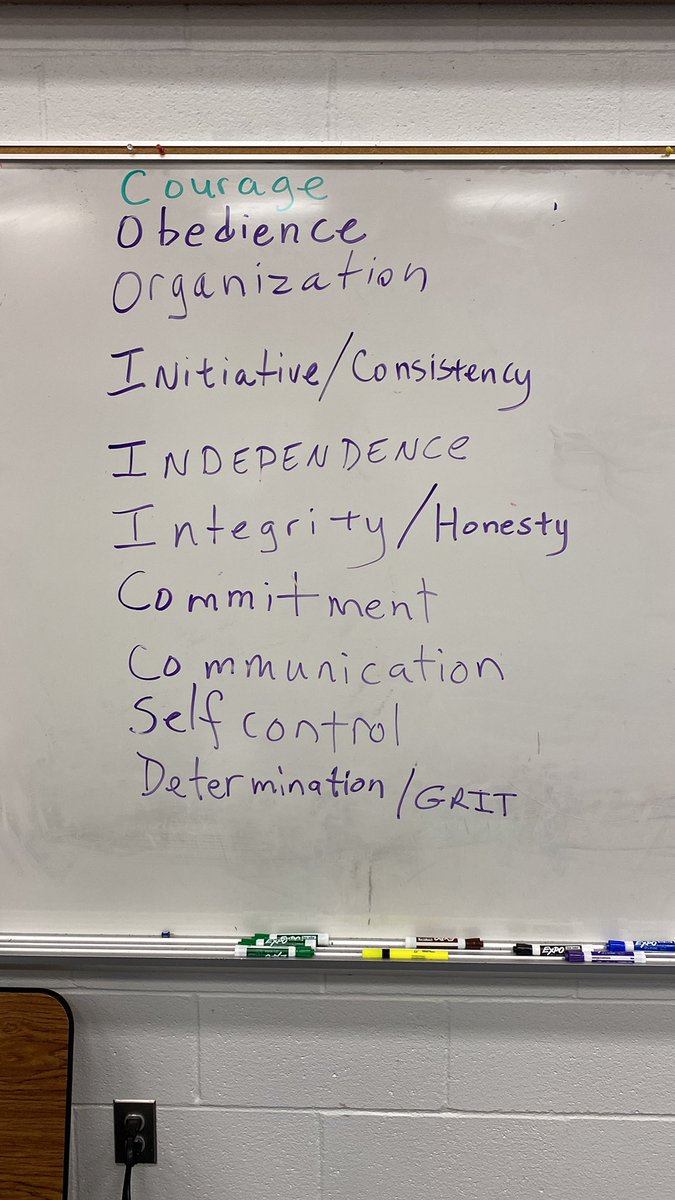 Courage
Obedience
Organization
Initiative/Consistency
INDEPENDENCe
Integrity/Honesty
Commitment
Communication
Self control
Determination/GRIT
EXPO
EXPO
EXPO